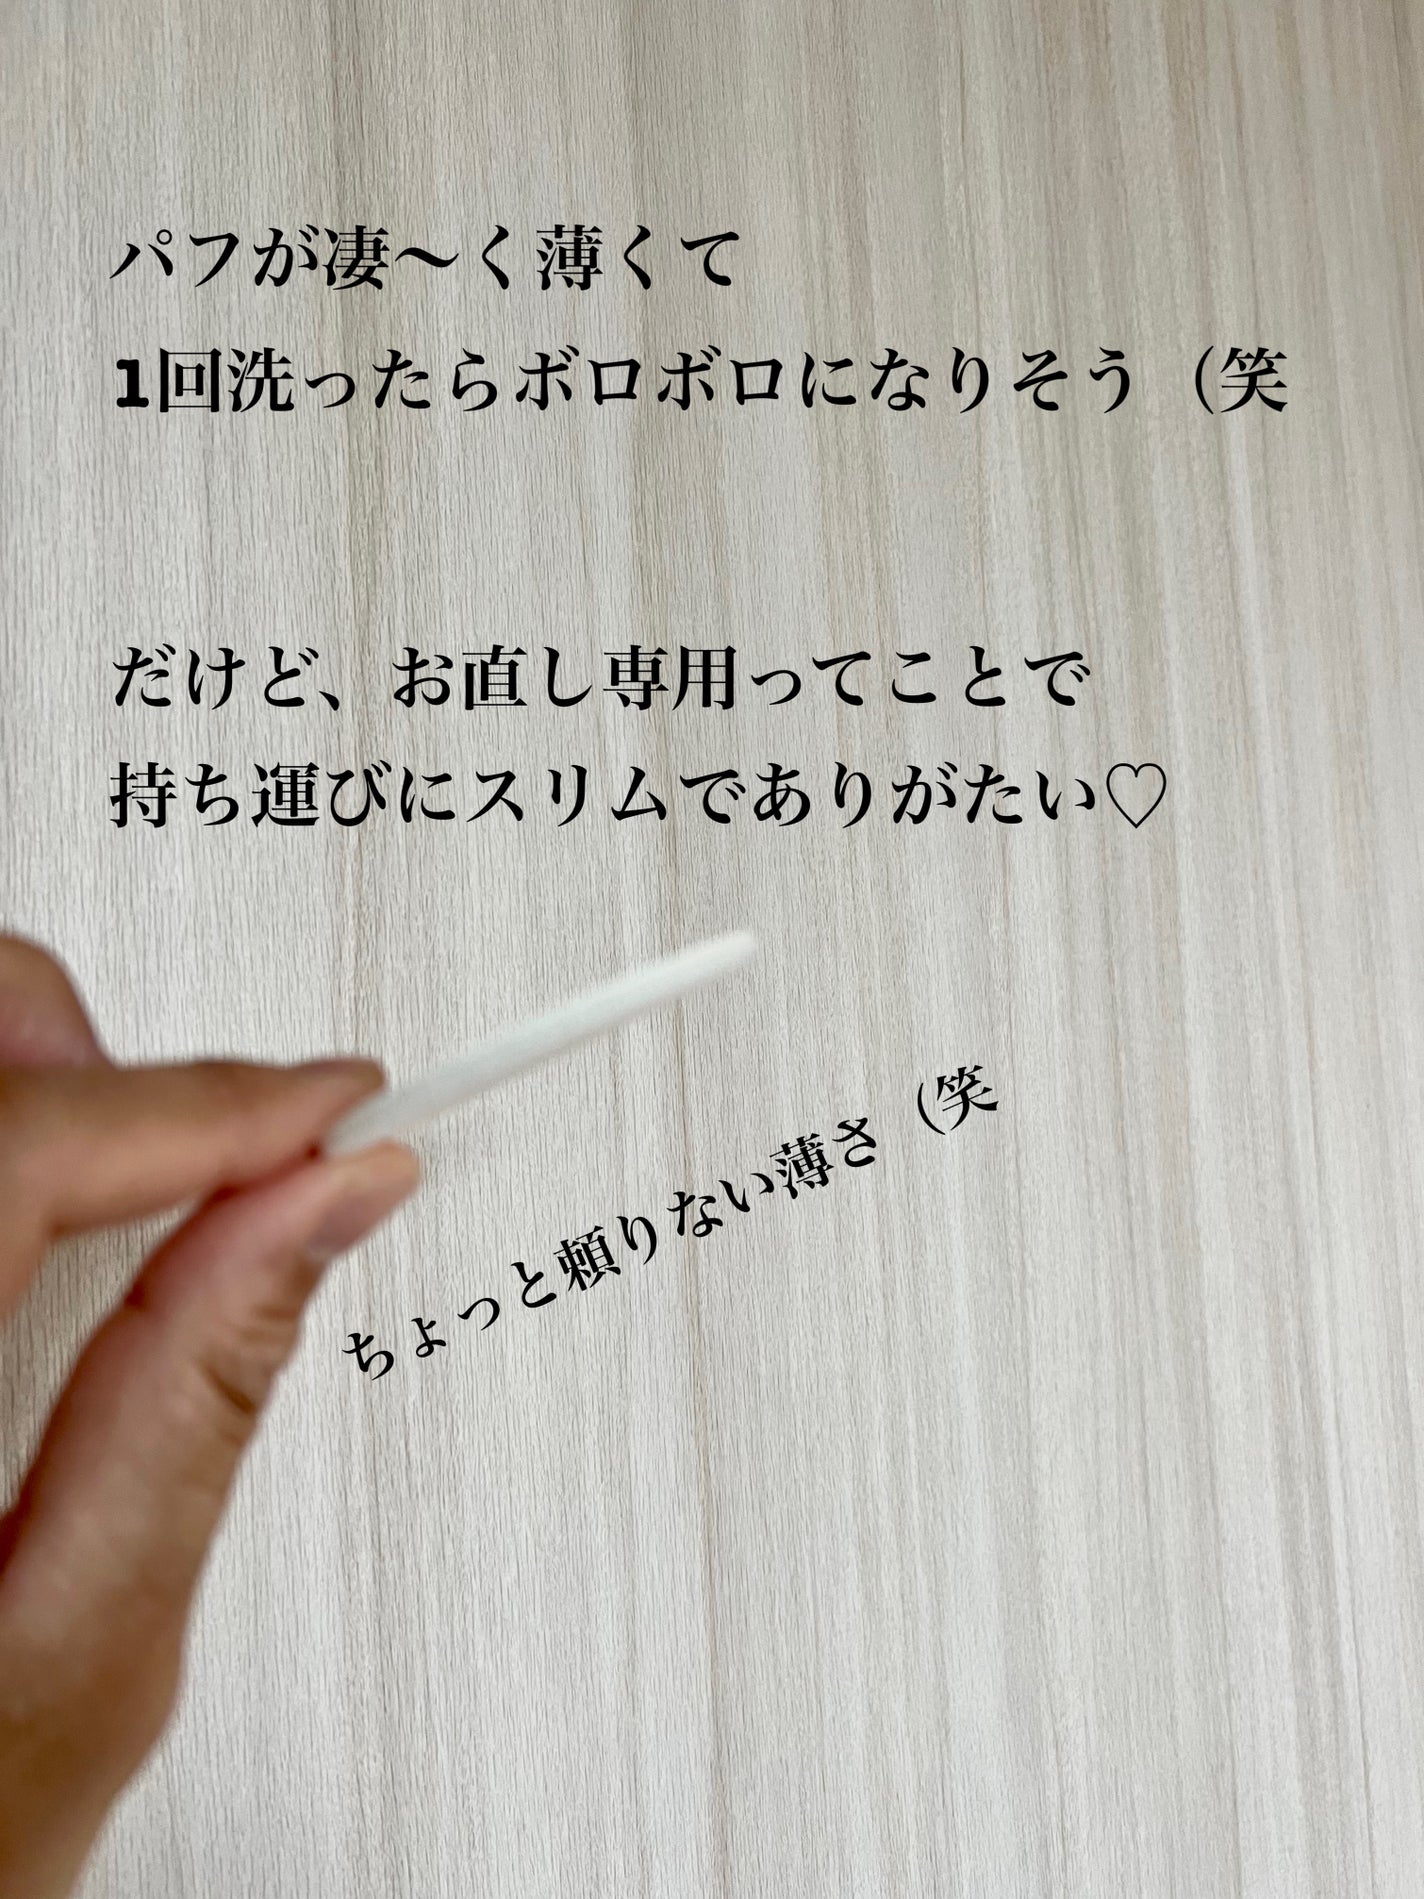 パフが凄〜く薄くて
1回洗ったらボロボロになりそう（笑
だけど、お直し専用ってことで
持ち運びにスリムでありがたい♡
ちょっと頼りない薄さ（笑